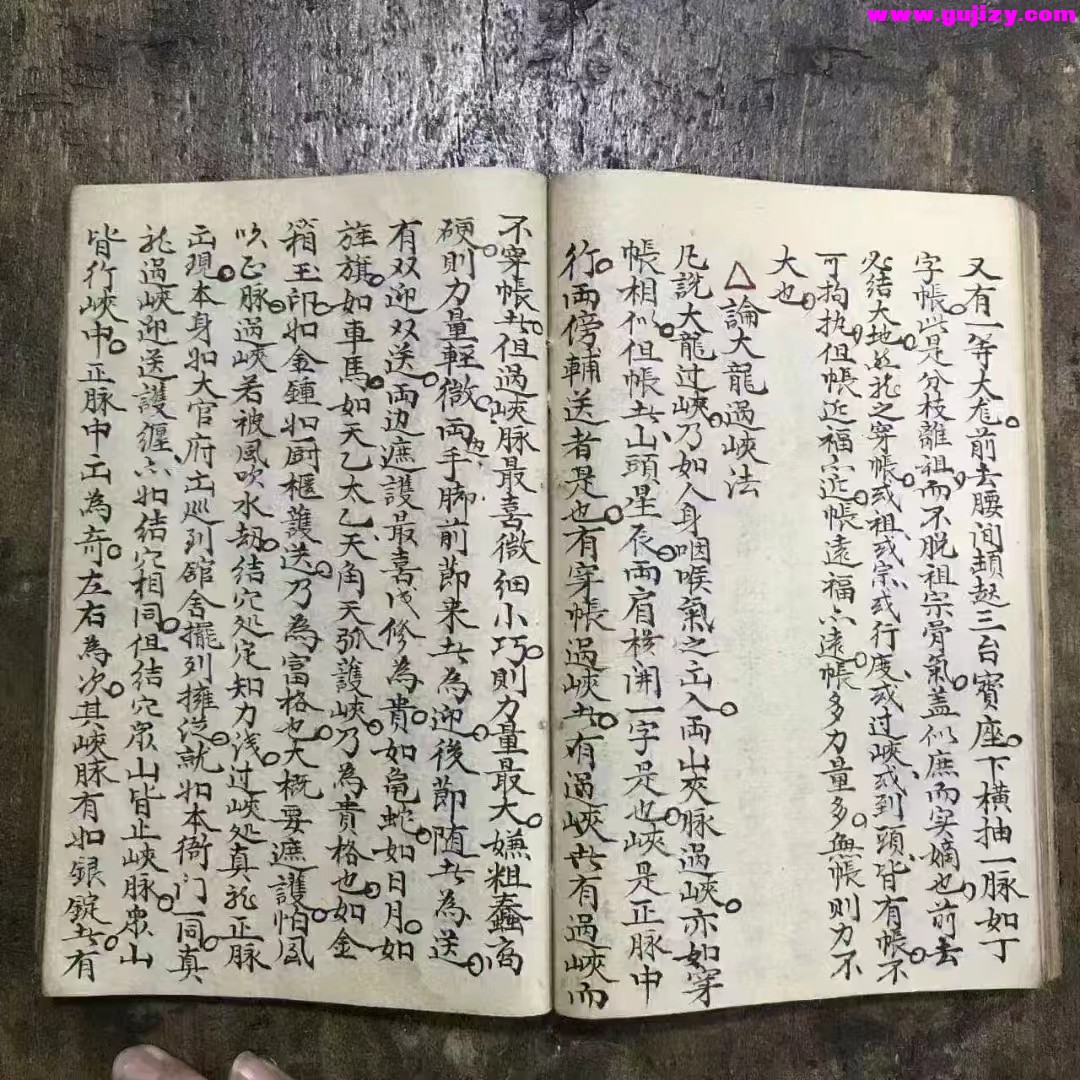 www.gujizy.com
又有一等大龙前去腰间頓起三台寳座下横抽一脉如丁
字帳此是分枝離祖而不脱祖宗骨氣盖似庶而实嫡也前去
必结大地然龙之穿帳或祖或宗或行度或过峡或到頭皆有帳不
可拘执但帳近福亦近帳遠福亦遠帳多力量多無帳則力不
大也
△論大龍過峽法
凡説大龍过峡乃如人身咽喉氣之出入两山夾脉過峡亦如穿
帳相似但帳者山頭星辰两肩横開一字是也峽是正脉中
行两傍輔送者是也有穿帳過峽者有過峽者有過峽而
不穿帳者但過峽脉最喜微細小巧則力量最大嫌粗蠢高
硬則力量輕微两手脚前節来者為迎後節随者為送
有双迎双送两边遮護最喜修為貴如亀蛇如日月如
旌旗如車馬如天乙太乙天角天弧護峡乃為貴格也如金
箱玉印如金鍾如厨櫃護送乃為富格也大概要遮護怕風
吹正脉過峡若被風吹水刼结穴处定知力浅过峡处真龙正脉
出現本身如大官府出巡列舘舍擺列擁从就如本衙门一同真
龙過峡迎送護纏亦如结穴相同但结穴眾山皆止峽脉眾山
皆行峡中正脉中出為奇左右為次其峽脉有如銀錠者有